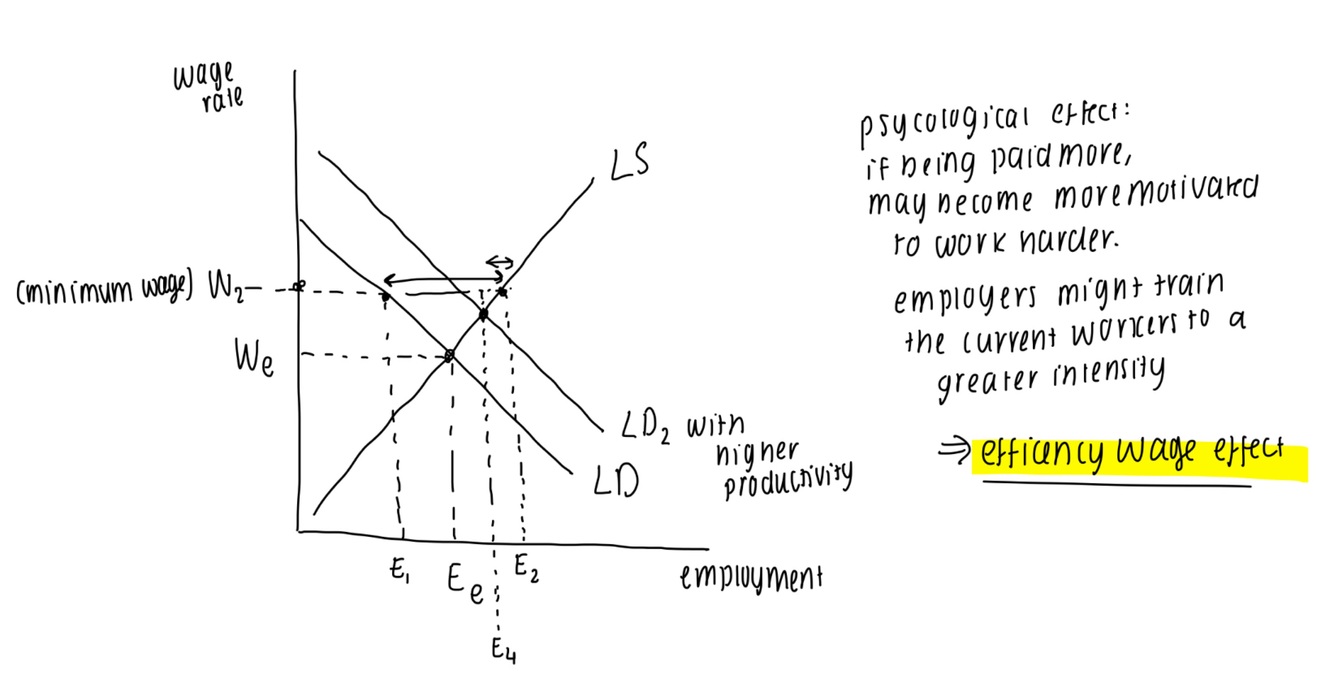 wage
rate
LS
(minimum wage) W₂
We
LD₂ with
higher
productivity
LD
E₁
Ee
E₂
E₄
employment
psycological effect:
if being paid more,
may become more motivated
to work harder.
employers might train
the current workers to a
greater intensity
⇒ efficency wage effect